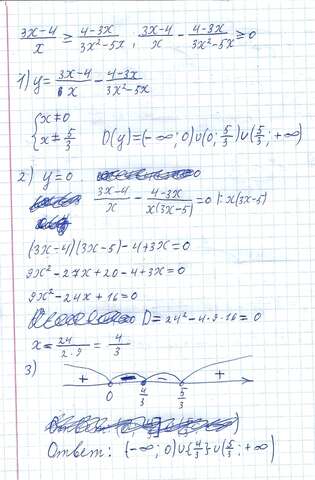 3x-4/x ≥ 4-3x/3x²-5x, 3x-4/x - 4-3x/3x²-5x ≥ 0
1) y = 3x-4/x - 4-3x/3x²-5x
{x≠0
{x≠5/3 D(y)=(-∞; 0)∪(0; 5/3)∪(5/3; +∞)
2) y=0
3x-4/x - 4-3x/x(3x-5) = 0 |· x(3x-5)
(3x-4)(3x-5)-4+3x=0
9x²-27x+20-4+3x=0
9x²-24x+16=0
D=24²-4·9·16=0
x= 24/2·9 = 4/3
3)
+ - - +
0 4/3 5/3
Ответ: (-∞; 0)∪{4/3}∪(5/3; +∞)